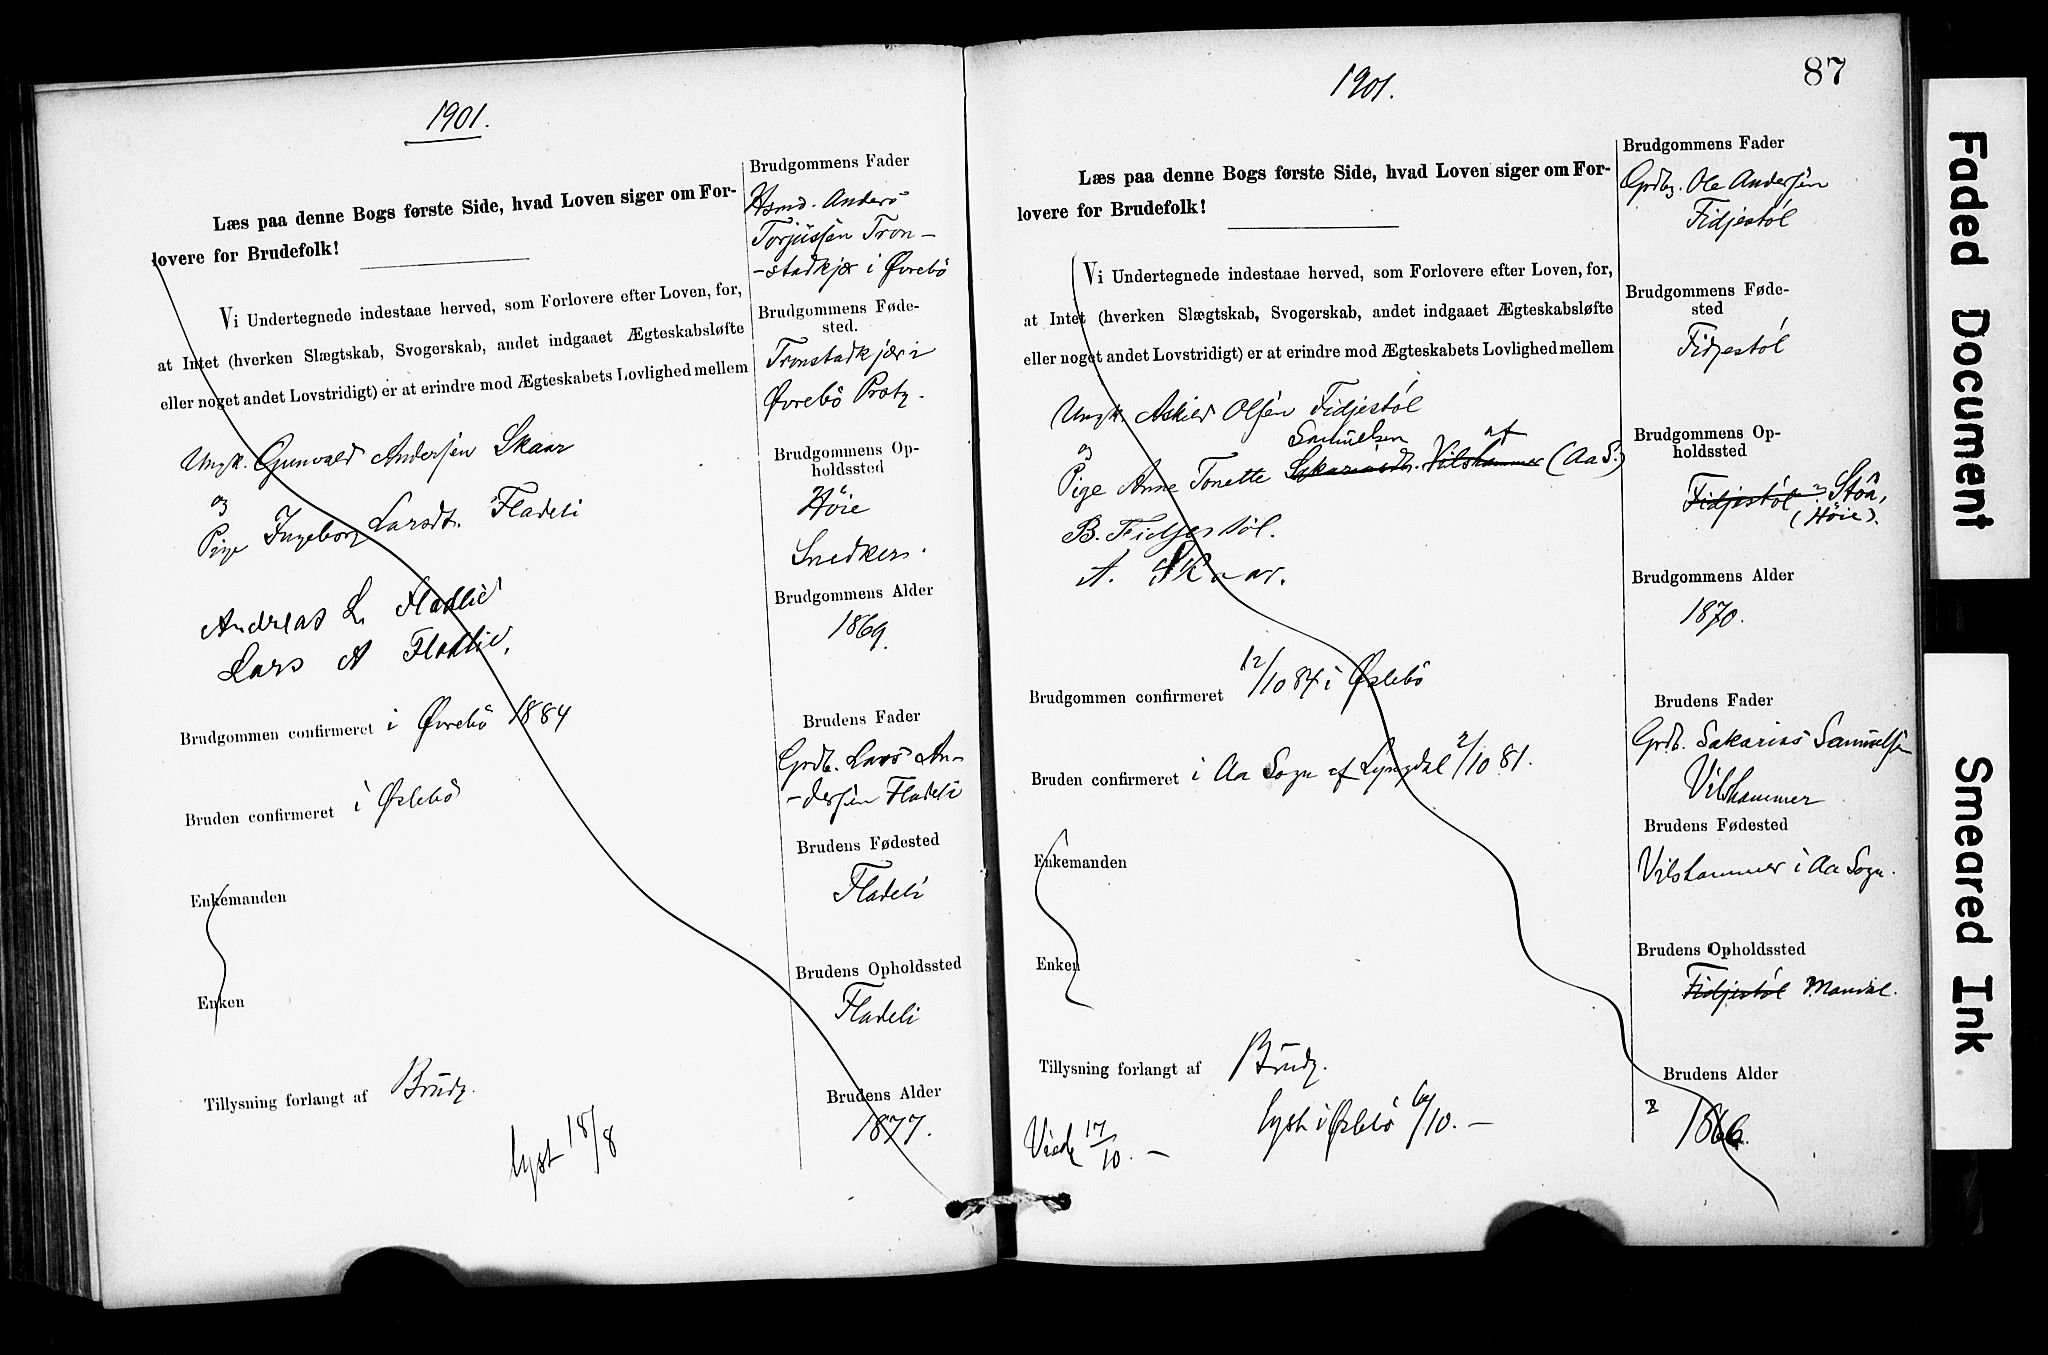 1901.
Læs paa denne Bogs første Side, hvad Loven siger om For-
lovere for Brudefolk!
Vi Undertegnede indestaae herved, som Forlovere efter Loven, for,
at Intet (hverken Slægtskab, Svogerskab, andet indgaaet Ægteskabsløfte
eller noget andet Lovstridigt) er at erindre mod Ægteskabets Lovlighed mellem
Ungk. Gunvald Andersen Skaar
og
Pige Ingeborg Larsdt. Fladeli
Andreas L. Fladlid
Lars A Fladlid.
Brudgommen confirmeret i Øvrebö 1884
Bruden confirmeret i Øslebö
Enkemanden
Enken
Tillysning forlangt af Brudg.
lyst 18/8
Brudgommens Fader
Hsmd. Anders
Torjussen Tron-
-stadkjær i Øvrebö
Brudgommens Føde-
sted.
Tronstadkjær i
Øvrebö Prstg.
Brudgommens Op-
holdssted
Höie
Snedker.
Brudgommens Alder
1869.
Brudens Fader
Grdb. Lars An-
-dersen Fladeli
Brudens Fødested
Fladeli
Brudens Opholdssted
Fladeli
Brudens Alder
1877.
87
1901.
Læs paa denne Bogs første Side, hvad Loven siger om For-
lovere for Brudefolk!
Vi Undertegnede indestaae herved, som Forlovere efter Loven, for,
at Intet (hverken Slægtskab, Svogerskab, andet indgaaet Ægteskabsløfte
eller noget andet Lovstridigt) er at erindre mod Ægteskabets Lovlighed mellem
Ungk. Askild Olsen Fidjestöl
og Samuelsen af
Pige Anne Tonette Sakariasdt. Vilshammer (Aa S.)
B. Fidjestöl.
A. Skaar.
Brudgommen confirmeret 12/10 84 i Øslebö
Bruden confirmeret i Aa Sogn af Lyngdal 2/10 81.
Enkemanden
Enken
Tillysning forlangt af Brudg.
lyst i Øslebö 6/10. -
Viede 17/10. -
Brudgommens Fader
Grdbr. Ole Andersen
Fidjestöl
Brudgommens Føde-
sted
Fidjestöl
Brudgommens Op-
holdssted
Fidjestöl
(Höie).
Brudgommens Alder
1870.
Brudens Fader
Grdb. Sakarias Samuelsen
Vilshammer
Brudens Fødested
Vilshammer i Aa Sogn.
Brudens Opholdssted
Fidjestöl Mandal.
Brudens Alder
1866.
Faded Document
Smeared Ink